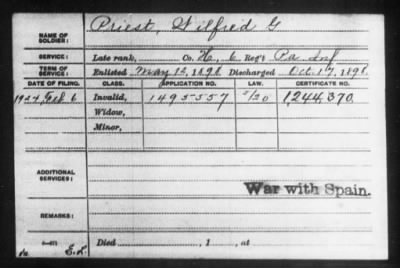 NAME OF SOLDIER: Priest, Wilfred G
SERVICE: Late rank, Co. H, 6 Reg't Pa Inf
TERM OF SERVICE: Enlisted May 12, 1898 Discharged Oct 17, 1898.
DATE OF FILING. CLASS. APPLICATION NO. LAW. CERTIFICATE NO.
1924, Feb 6 Invalid, 1495557 5/20 1,244,370.
Widow,
Minor,
ADDITIONAL SERVICES:
War with Spain.
REMARKS:
Died , 1 , at